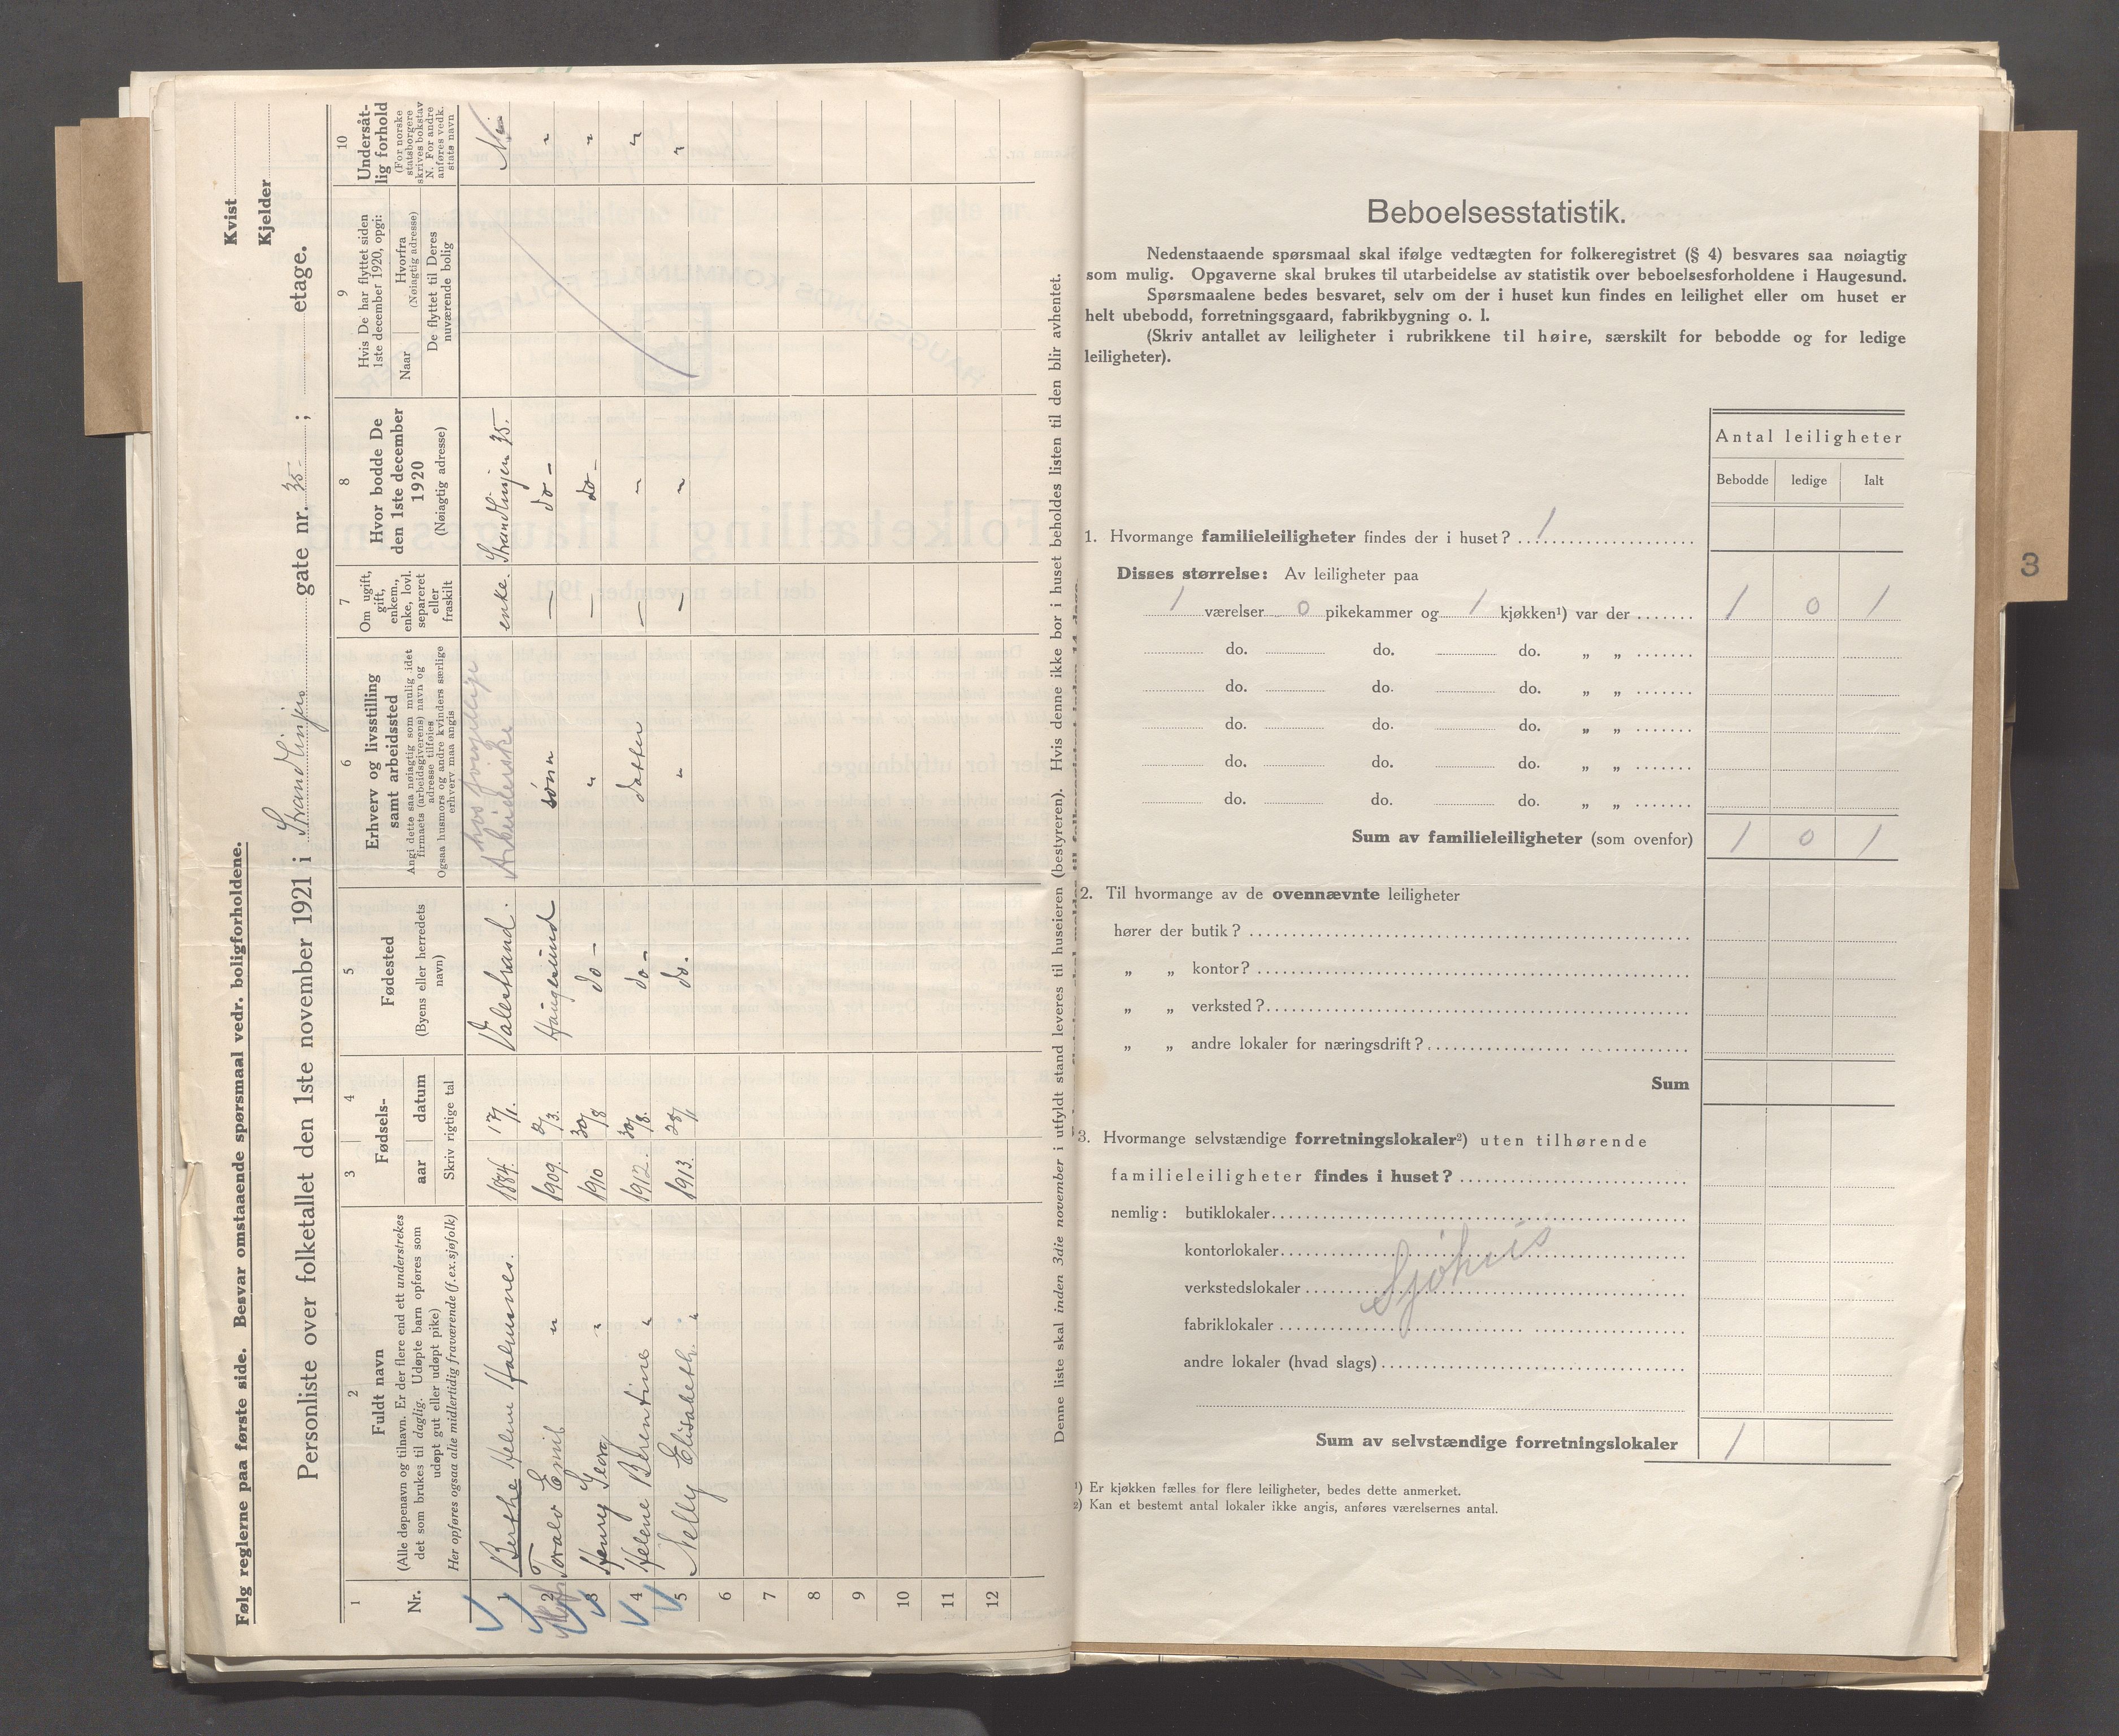 Følg reglerne paa første side. Besvar omstaaende spørsmaal vedr. boligforholdene.
Kvist
Kjelder
Personliste over folketallet den 1ste november 1921 i Strandlinjen gate nr. 35- ; etage.
1
2
3
4
5
6
7
8
9
10
Nr.
Fuldt navn
(Alle døpenavn og tilnavn. Er der flere end ett understrekes
det som brukes til daglig. Udøpte barn opføres som
udøpt gut eller udøpt pike)
Her opføres ogsaa alle midlertidig fraværende (f.ex.sjøfolk)
Fødsels-
aar
datum
Skriv rigtige tal
Fødested
(Byens eller herredets
navn)
Erhverv og livsstilling
samt arbeidssted
Angi dette saa nøiagtig som mulig idet
firmaets (arbeidsgiverens) navn og
adresse tilføies
Ogsaa husmors og andre kvinders særlige
erhverv maa angis
Om ugift,
gift,
enkem.,
enke, lovl.
separeret
eller
fraskilt
Hvor bodde De
den 1ste december
1920
(Nøiagtig adresse)
Hvis De har flyttet siden
1ste december 1920, opgi:
Naar
Hvorfra
(Nøiagtig adresse)
De flyttet til Deres
nuværende bolig
Undersåt-
lig forhold
(For norske
statsborgere
skrives bokstav
N. For andre
anføres vedk.
stats navn
1 Berthe Helene 1884. 17/1. Valestrand. Arbeiderske enke. Strandlinjen 35. N
2 Toralv Emil " 1909. 2/3. Haugesund sønn — do - "
3 Henry Georg " 1910 30/8 do - " — do - "
4 Helene Berentine " 1912. 30/8. do - datter — " "
5 Nelly Elisabeth " 1913. 28/1 do. " — " "
6
7
8
9
10
11
12
Denne liste skal inden 3die november i utfyldt stand leveres til huseieren (bestyreren). Hvis denne ikke bor i huset beholdes listen til den blir avhentet.
Beboelsesstatistik.
Nedenstaaende spørsmaal skal ifølge vedtægten for folkeregistret (§ 4) besvares saa nøiagtig
som mulig. Opgaverne skal brukes til utarbeidelse av statistik over beboelsesforholdene i Haugesund.
Spørsmaalene bedes besvaret, selv om der i huset kun findes en leilighet eller om huset er
helt ubebodd, forretningsgaard, fabrikbygning o. l.
(Skriv antallet av leiligheter i rubrikkene til høire, særskilt for bebodde og for ledige
leiligheter).
Antal leiligheter
Bebodde ledige Ialt
1. Hvormange familieleiligheter findes der i huset? 1
Disses størrelse: Av leiligheter paa
1 værelser 0 pikekammer og 1 kjøkken¹) var der ....... 1 0 1
do. do. do. „ „ .......
do. do. do. „ „ .......
do. do. do. „ „ .......
do. do. do. „ „ .......
do. do. do. „ „ .......
Sum av familieleiligheter (som ovenfor) 1 0 1
2. Til hvormange av de ovennævnte leiligheter
hører der butik?
„ „ kontor?
„ „ verksted?
„ „ andre lokaler for næringsdrift?
Sum
3. Hvormange selvstændige forretningslokaler²) uten tilhørende
familieleiligheter findes i huset?
nemlig: butiklokaler
kontorlokaler
verkstedslokaler
Sjøhus
fabriklokaler
andre lokaler (hvad slags)
Sum av selvstændige forretningslokaler 1
¹) Er kjøkken fælles for flere leiligheter, bedes dette anmerket.
²) Kan et bestemt antal lokaler ikke angis, anføres værelsernes antal.
3